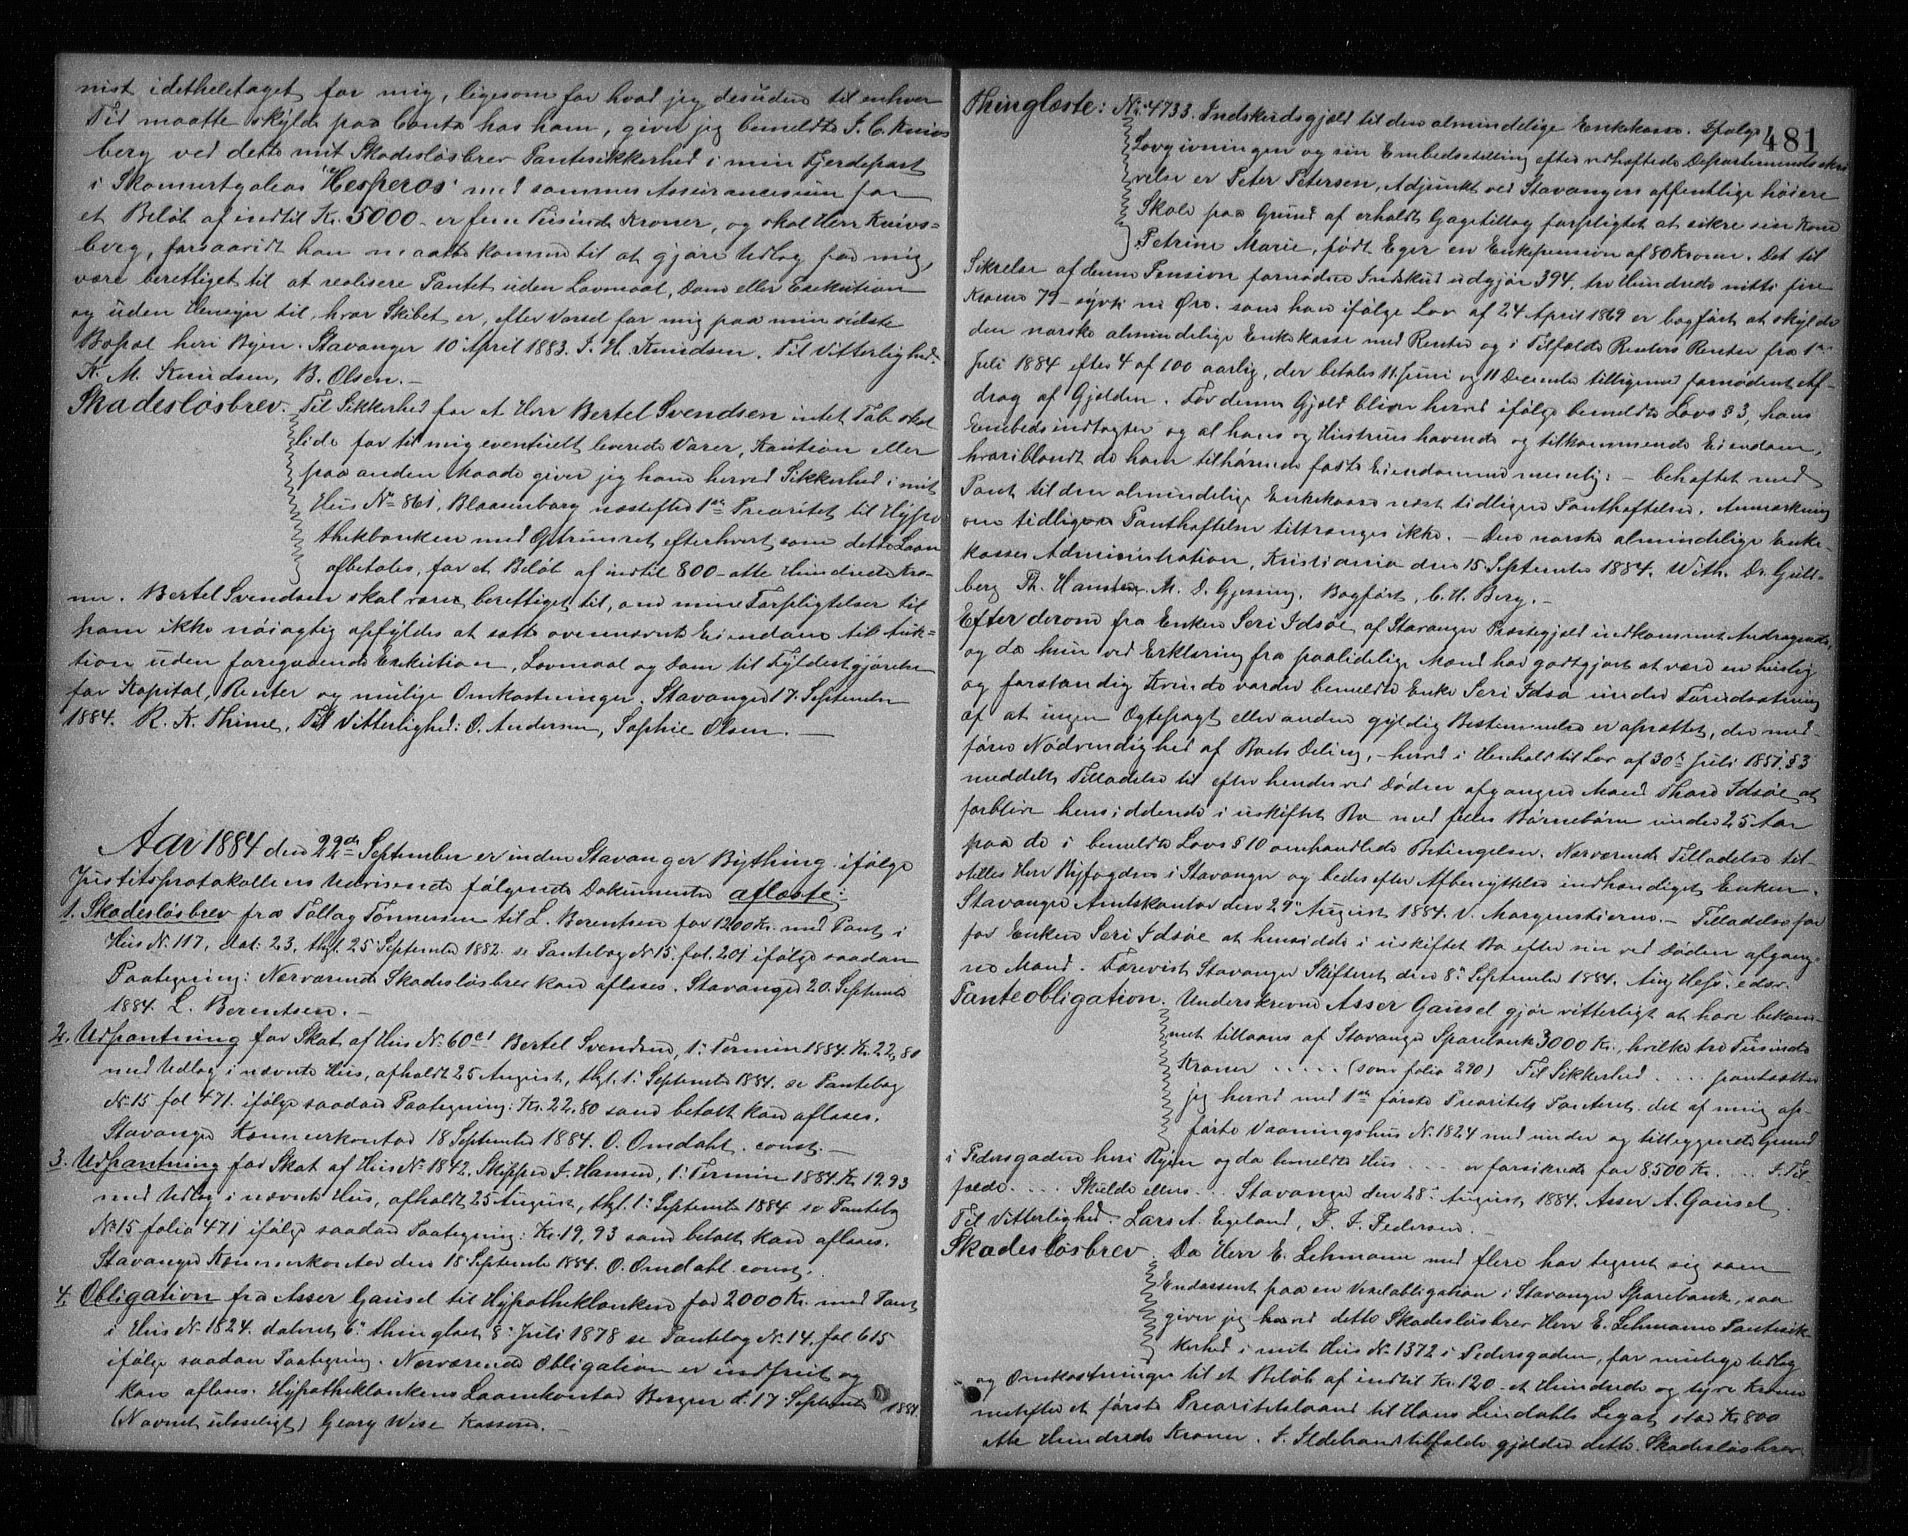 nist idetheletaget for mig, ligesom for hvad jeg desuden til enhver
Tid maatte skylde paa Conto hos ham, giver jeg bemeldte J. C. Knivs
berg ved dette mit Skadesløsbrev Pantesikkerhed i min Fjerdepart
i Skonnertgaleas "Hesperos" med sammes Assurancesum for
et Beløb af indtil Kr. 5000 - er fem Tusinde Kroner, og skal Herr Knivs=
berg, forsaavidt han maatte komme til at gjøre Udlæg for mig,
være berettiget til at realisere Pantet uden Lovmaal, Dom eller Exekution
og uden Hensyn til, hvor Skibet er, efter Varsel for mig paa min sidste
Bopæl heri Byen. Stavanger 10 April 1883. J. H. Knudsen. Til Vitterlighed:
K. M. Knudsen, B. Olsen. —
Skadesløsbrev. Til Sikkerhed for at Herr Bertel Svendsen intet Tab skal
lide for til mig eventuelt leverede Varer, Kaution eller
paa anden Maade giver jeg ham herved Sikkerhed i mit
Hus No 861, Blaasenborg næstefter 1ste Prioritet til Hypo
thekbanken med Optrinsret efterhvert som dette Laan
afbetales, for et Beløb af indtil 800 - otte Hundrede Kro-
ner. Bertel Svendsen skal være berettiget til, om mine Forpligtelser til
ham ikke nøiagtig opfyldes at sætte ovennævnte Eiendom til Auk-
tion uden foregaaende Exekution, Lovmaal og Dom til Fyldestgjørelse
for Kapital, Renter og mulige Omkostninger. Stavanger 17. September
1884. R. K. Thime, Til Vitterlighed: O. Andersen, Sophie Olsen. —
Aar 1884 den 22de September er inden Stavanger Bything ifølge
Justitsprotokollens Udvisende følgende Dokumenter aflæste:
1. Skadesløsbrev fra Tollag Tønnessen til L. Berentsen for 1200 Kr. med Pant i
Hus No 117, dat: 23, thgl. 25 September 1882 se Pantebog No 15. fol. 201 ifølge saadan
Paategning: Nærværende Skadesløsbrev kan aflæses. Stavanger 20. Septembr
1884. L. Berentsen. —
2. Udpantning for Skat af Hus No 60 c1 Bertel Svendsen, 1: Termin 1884 Kr. 22,80
med Udlæg i nævnte Hus, afholdt 25 August, thgl. 1: September 1884. se Pantebog
No 15 fol 471. ifølge saadan Paategning: Kr. 22.80 samt betalt kan aflæses.
Stavanger Kemnerkontor 18 September 1884. O. Omdahl. const. —
3. Udpantning for Skat af Hus No 1842. Skipper J. Hansen, 1: Termin 1884 Kr. 19.93
med Udlæg i nævnte Hus, afholdt 25 August, thgl. 1: September 1884 se Pantebog
No 15 folio 471 ifølge saadan Paategning: Kr. 19,93 samt betalt kan aflæses.
Stavanger Kemnerkontor den 18 September 1884. O. Omdahl const.
4. Obligation fra Asser Gausel til Hypothekbanken for 2000 Kr. med Pant
i Hus No 1824. dateret 6: thinglæst 8: Juli 1878 se Pantebog No 14. fol 615
ifølge saadan Paategning. Nærværende Obligation er indfriet og
kan aflæses. Hypothekbankens Laanekontor Bergen d. 17 September 1884.
(Navnet ulæseligt) Georg Wise Kasserer. —
481
Thinglæste: No 4733. Indskudsgjæld til den almindelige Enkekasse. Ifølge
Lovgivningen og sin Embedsstilling efter vedhæftede Departementsskri
velse er Peter Petersen, Adjunkt ved Stavangers offentlige høiere
Skole paa Grund af erholdt Gagetillæg forpligtet at sikre sin Kone
Petrine Marie, født Eger en Enkepension af 80 Kroner. Det til
Sikrelse af denne Pension fornødne Indskud udgjør 394. tre Hundrede nitti fire
Kroner 79 - sytti ni Øre. som han ifølge Lov af 24 April 1869 er bogført at skylde
den norske almindelige Enkekasse med Renter og i Tilfælde Renters Rente fra 1ste
Juli 1884 efter 4 af 100 aarlig, der betales 11 Juni og 11 December tilligemed fornødent Af-
drag af Gjælden. For denne Gjæld bliver herved ifølge bemeldte Lovs § 3, hans
Embedsindtægter og al hans og Hustrus havende og tilkommende Eiendom,
hvoriblandt de ham tilhørende faste Eiendomme nemlig: — behæftet med
Pant til den almindelige Enkekasse næst tidligere Panthæftelser. Anmærkning
om tidligere Panthæftelser tiltrænges ikke. — Den norske almindelige Enke-
kasses Administration, Kristiania den 15 September 1884. With. Dr. Guld-
berg Th. Hansteen. M. D. Gjessing. Bogført, C. H. Berg. —
Efter derom fra Enken Seri Idsøe af Stavanger Præstegjeld indkommet Andragende,
og da hun ved Erklæring fra paalidelige Mænd har godtgjort at være en huslig
og forstandig Kvinde vorder bemeldte Enke Seri Idsø under Forudsætning
af at ingen Ægtepagt eller anden gyldig Bestemmelse er oprettet, der med-
fører Nødvendighed af Boets Deling, - herved i Henhold til Lov af 30te Juli 1851 § 3
meddelt Tilladelse til efter hendes ved Døden afgangne Mand Thore Idsøe at
forblive hensiddende i uskiftet Bo med fælles Børnebørn under 25 Aar
paa de i bemeldte Lovs § 10 omhandlede Betingelser. Nærværende Tilladelse til-
stilles Herr Byfogden i Stavanger og bedes efter Afbenyttelse indhændiget Enken.
Stavanger Amtskontor den 29: August 1884. V. Morgenstierne. — Tilladelse for
for Enken Seri Idsøe at hensidde i uskiftet Bo efter sin ved Døden afgang-
ne Mand. Forevist Stavanger Skifteret den 8: September 1884. Aug Hess. edsv.
Panteobligation. Underskrevne Asser Gausel gjør vitterligt at have bekom-
met tillaans af Stavanger Sparebank 3000 Kr., hvilke tre Tusinde
Kroner . . . . . (som folio 290) Til Sikkerhed . . . . pantsætter
jeg herved med 1ste første Prioritets Panteret det af mig op-
førte Vaaningshus No 1824 med under og tilliggende Grund
i Pedersgaden heri Byen og da bemeldte Hus . . . er forsikrede for 8500 Kr. . . . I Til-
fælde . . . . Skulde ellers . . . Stavanger den 28: August 1884. Asser A. Gausel.
Til Vitterlighed: Lars A. Egeland, P. J. Pedersen.
Skadesløsbrev. Da Herr E. Lehmann med flere har tegnet sig som
Endossent paa en Vexelobligation i Stavanger Sparebank, saa
giver jeg herved dette Skadesløsbrev Herr E. Lehmann Pantesik-
kerhed i mit Hus No 1372 i Pedersgaden, for mulige Udlæg
og Omkostninger til et Beløb af indtil Kr. 120 - et Hundrede og tyve Kroner
næstefter et første Prioritetslaan til Hans Lindahls Legat stor Kr 800
otte Hundrede Kroner. I Ildebrandstilfælde gjælder dette Skadesløsbrev